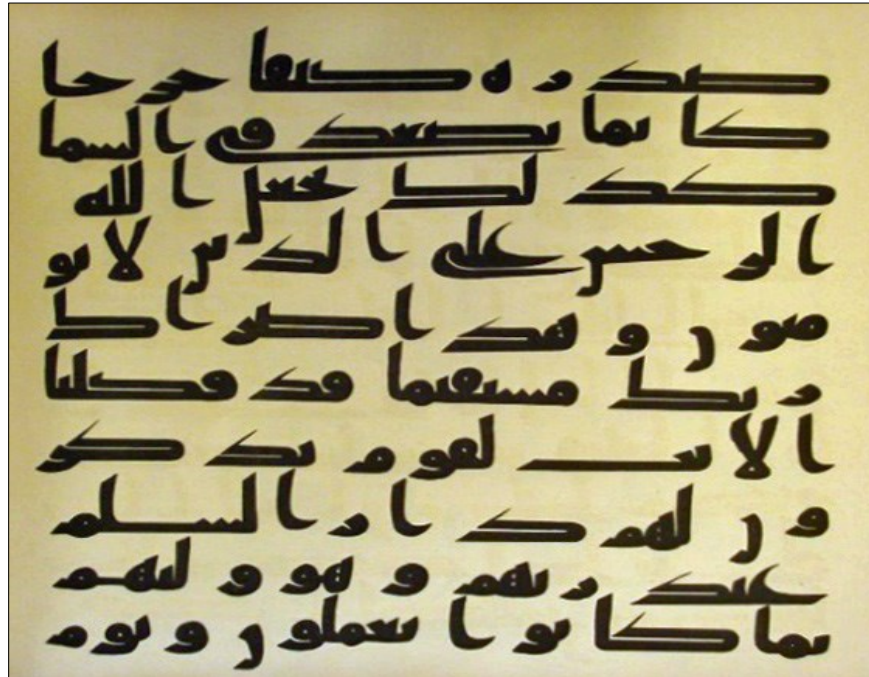 صدره ضيقا حرجا
كانما يصعد في السما
كذلك يجعل الله
الرجس على الذين لا يو
منون وهذا صراط
ربك مستقيما قد فصلنا
الايت لقوم يذكرو
ن لهم دار السلم
عند ربهم وهو وليهم
بما كانوا يعملون ويوم